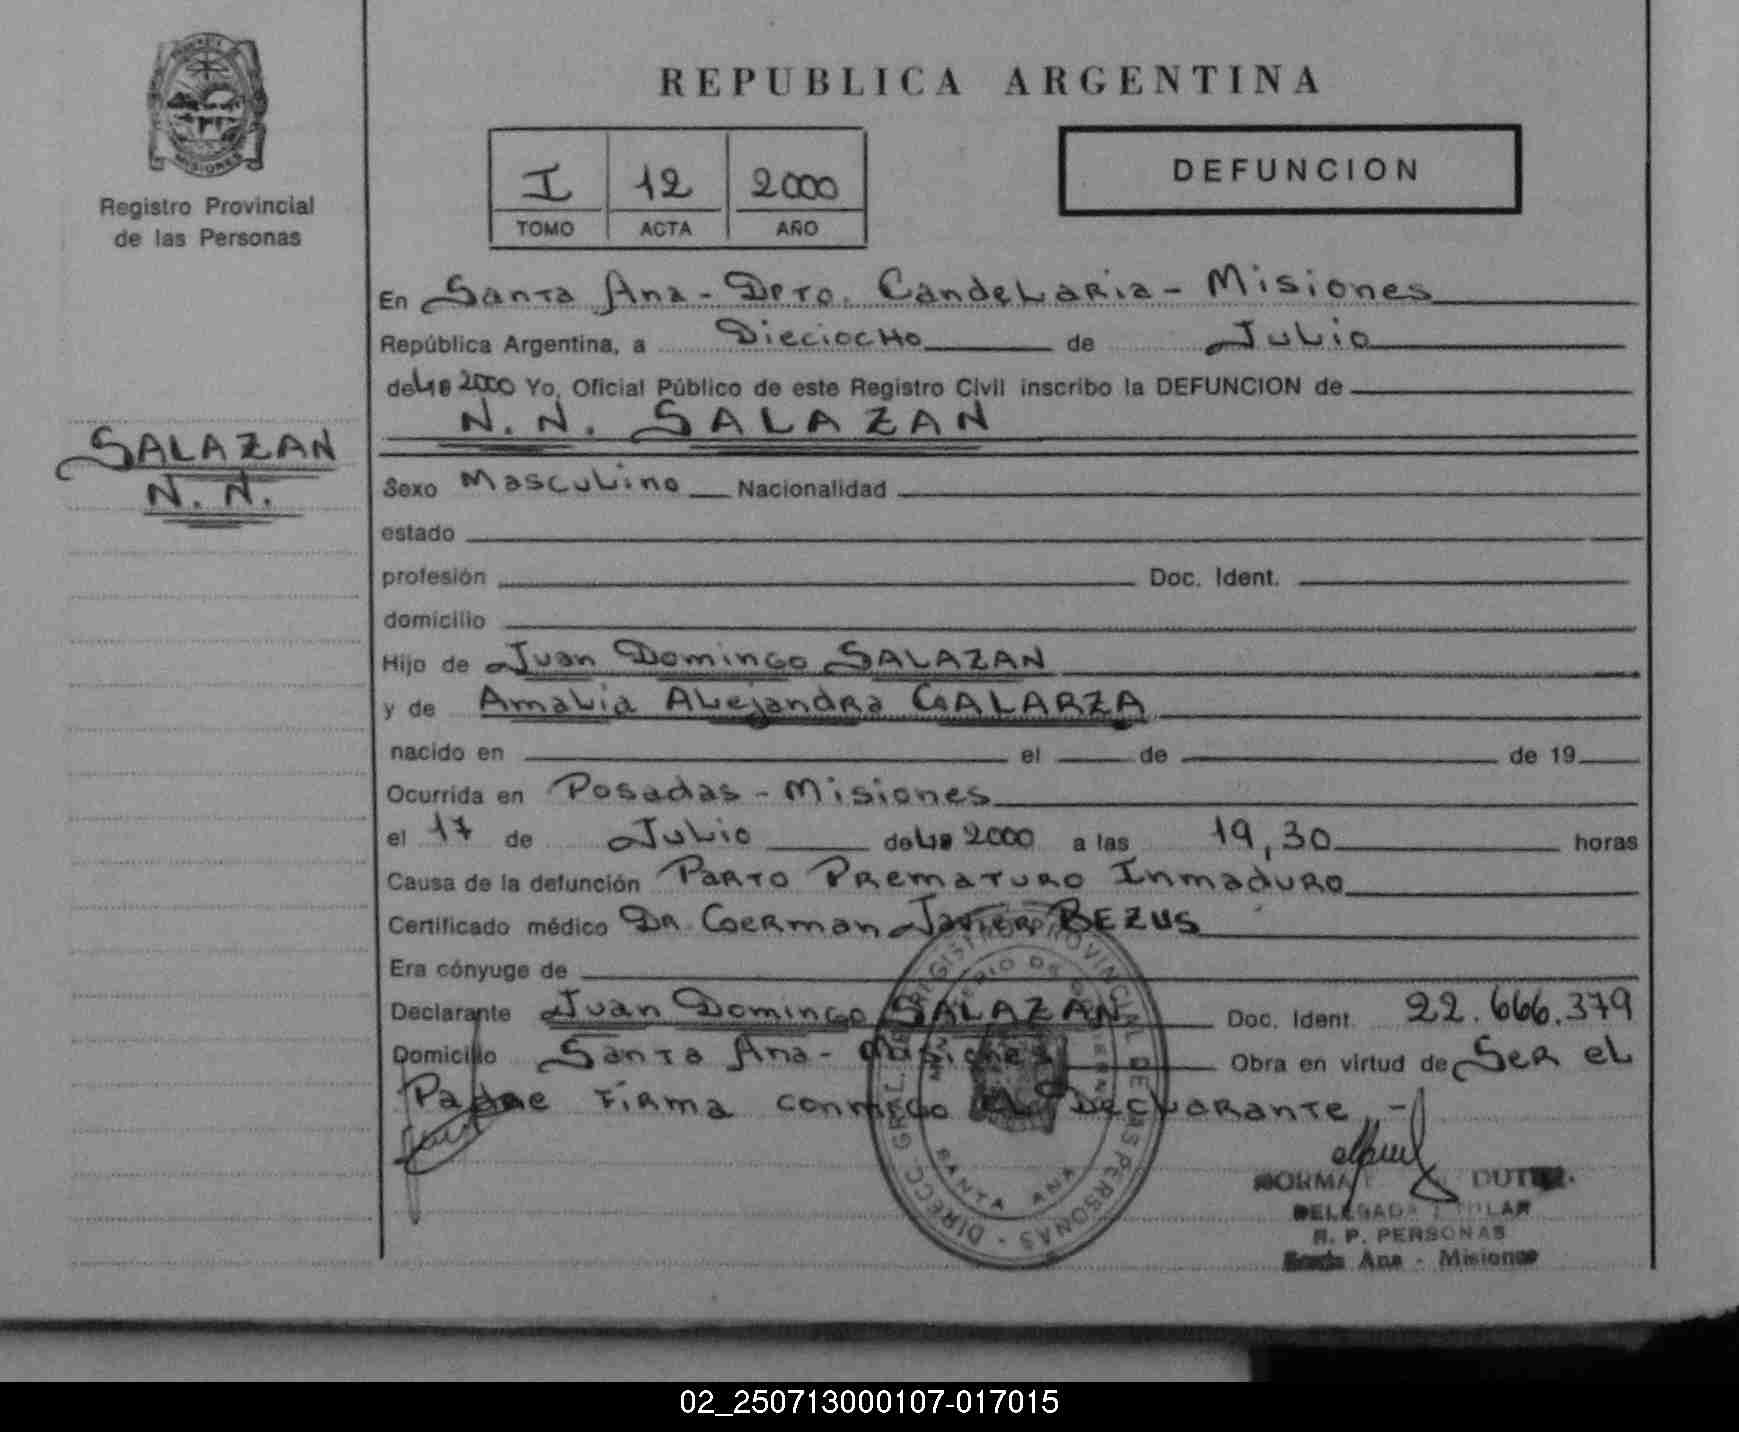 REPUBLICA ARGENTINA
MISIONES
Registro Provincial
de las Personas
I 12 2000
TOMO ACTA AÑO
DEFUNCION
En Santa Ana - Dpto. Candelaria - Misiones
República Argentina, a Dieciocho de Julio
del 2000 Yo, Oficial Público de este Registro Civil inscribo la DEFUNCION de
N. N. SALAZAN
SALAZAN
N. N.
Sexo Masculino Nacionalidad
estado
profesión Doc. Ident.
domicilio
Hijo de Juan Domingo SALAZAN
y de Amalia Alejandra GALARZA
nacido en el de de 19
Ocurrida en Posadas - Misiones
el 17 de Julio de 2000 a las 19,30 horas
Causa de la defunción Parto Prematuro Inmaduro
Certificado médico Dr. German Javier BEZUS
Era cónyuge de
Declarante Juan Domingo SALAZAN Doc. Ident. 22.666.379
Domicilio Santa Ana - Misiones Obra en virtud de Ser el
Padre Firma conmigo el Declarante, -
DIRECC. GRAL. DEL REGISTRO PROVINCIAL DE LAS PERSONAS
MINISTERIO DE GOBIERNO
SANTA ANA
NORMA
DELEGADA TITULAR
R. P. PERSONAS
Santa Ana - Misiones
02_250713000107-017015